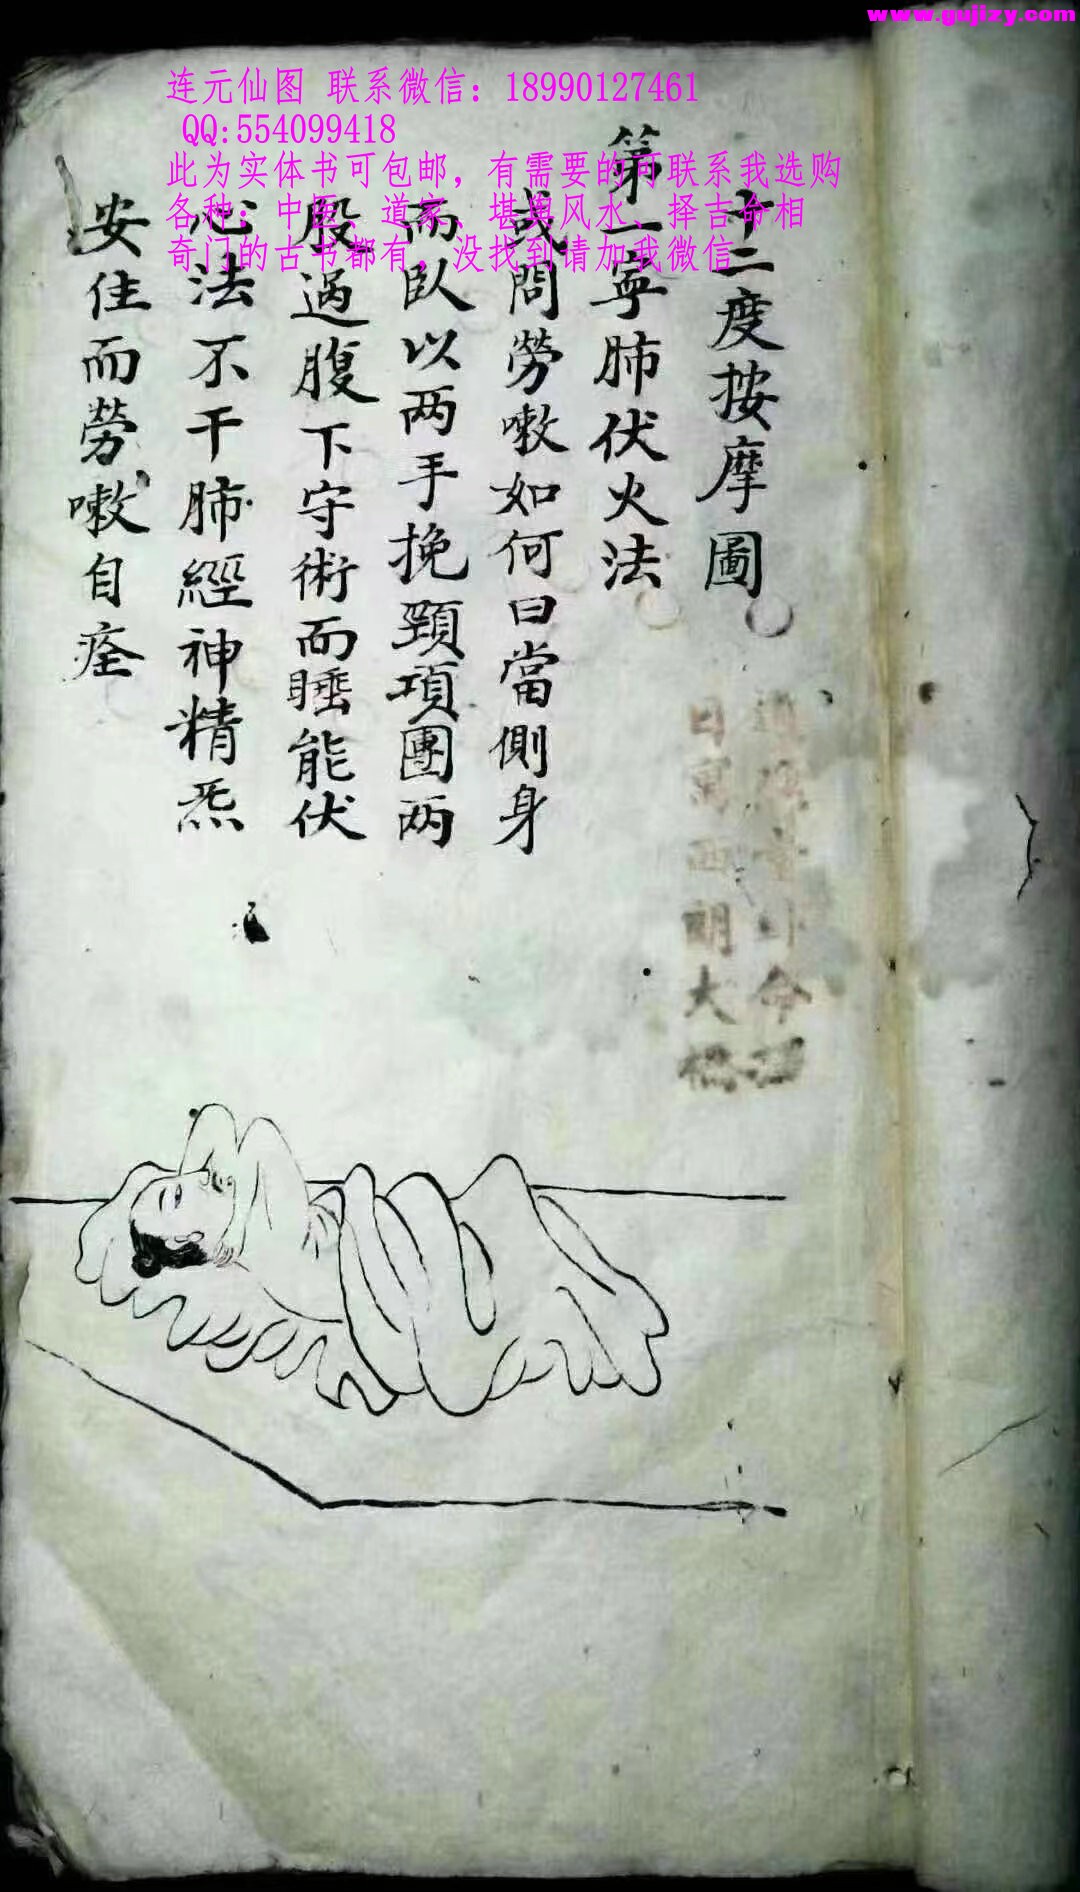 www.gujizy.com
连元仙图 联系微信：18990127461
QQ:554099418
此为实体书可包邮，有需要的可联系我选购
各种：中医、道家、堪舆风水、择吉命相
奇门的古书都有，没找到请加我微信
十二度按摩圖
第一寧肺伏火法
或問勞嗽如何曰當側身
而臥以两手挽頸項團两
股過腹下守術而睡能伏
心法不干肺經神精炁
安住而勞嗽自痊
日寫西朝大